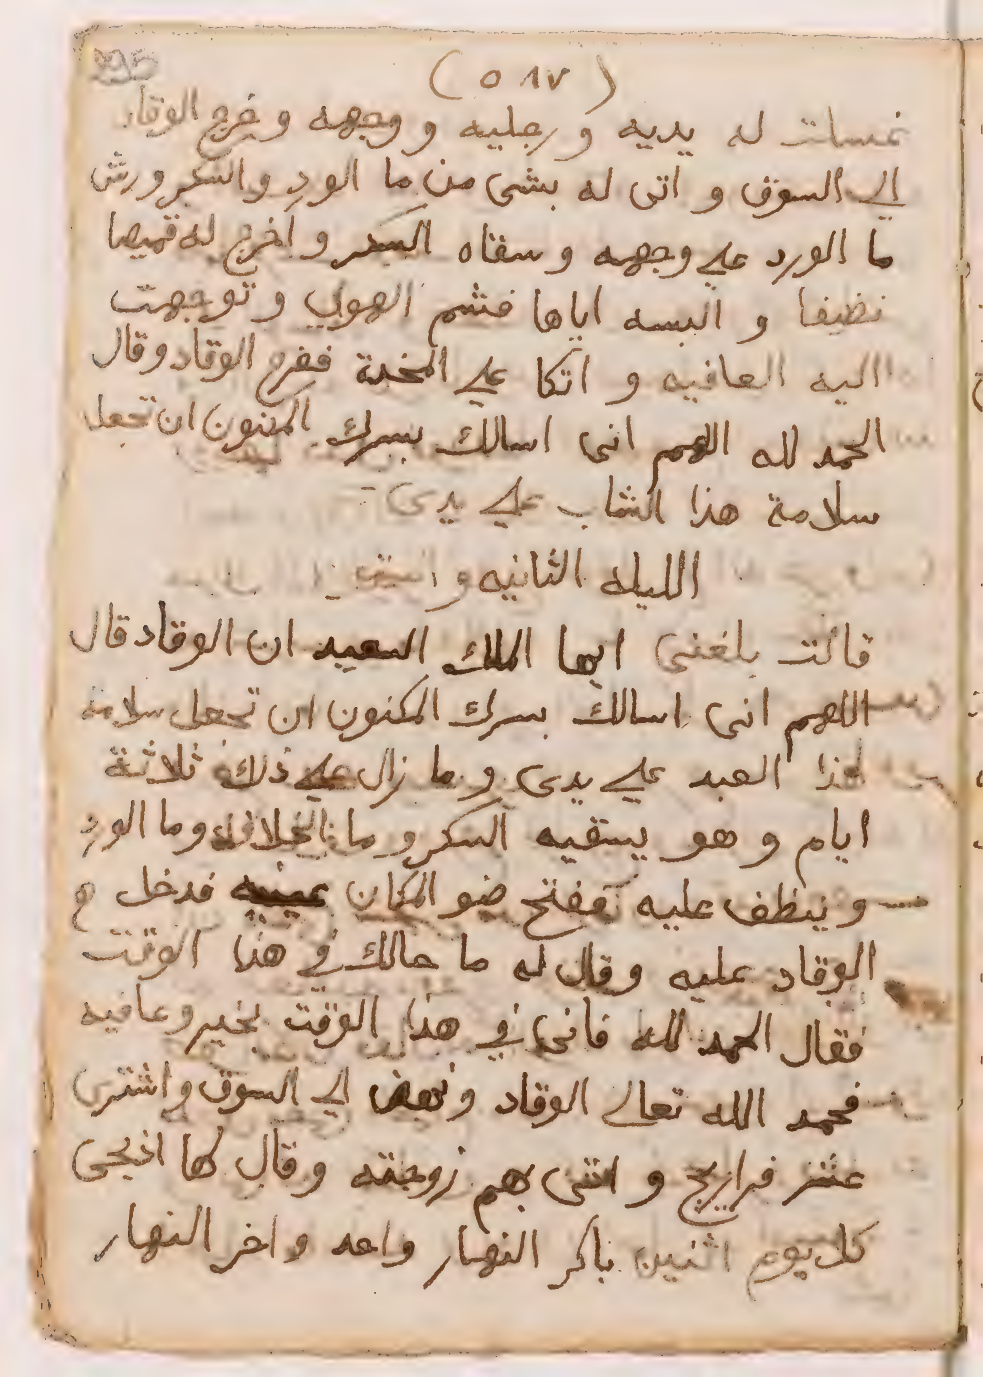 295
(٥١٧)
غسلت له يديه و رجليه و وجهه و خرج الوقاد
الي السوق و اتى له بشى من ما الورد والسكر ورش
ما الورد علي وجهه و سقاه السكر و اخرج له قميصا
نظيفا و البسه اياها فشم الهوي و توجهت
اليه العافيه و اتكا علي المخدة ففرح الوقاد وقال
الحمد لله اللهم انى اسالك بسرك المكنون ان تجعل
سلامة هذا الشاب علي يدى
الليله الثانيه و
قالت بلغنى ايها الملك السعيد ان الوقاد قال
اللهم انى اسالك بسرك المكنون ان تجعل سلامة
هذا العبد علي يدى و ما زال علي ذلك ثلاثة
ايام و هو يسقيه السكر و ما الخلاف وما الورد
و ينظف عليه ففتح ضو المكان عينيه فدخل
الوقاد عليه وقال له ما حالك في هذا الوقت
فقال الحمد لله فانى في هذا الوقت بخير وعافيه
فحمد الله تعالي الوقاد و نهض الي السوق و اشترى
عشر فراريج و اتى بهم زوجته وقال لها اذبحى
كل يوم اثنين باكر النهار واحد واخر النهار